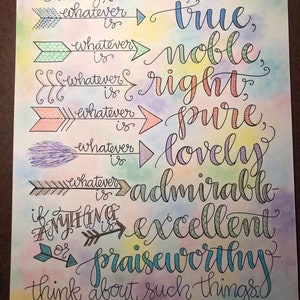 whatever is true,
whatever is noble,
whatever is right,
whatever is pure,
whatever is lovely
whatever is admirable-
if ANYTHING is excellent
or praiseworthy
think about such things.